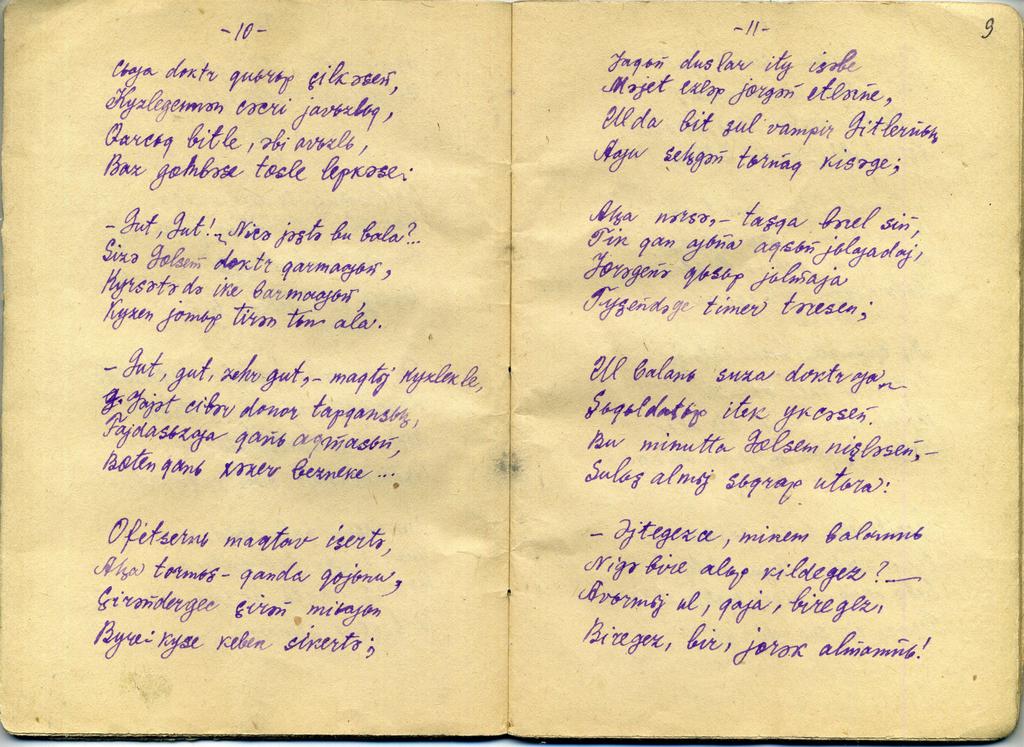 -10-
doktr quьrьp çilkəsen,
Kyzlegennən cəcri javьzlьq,
Qarcьq bitle, əbi avьzlь,
Baz gөmbəse tөsle lepkəse:
- Gut, Gut! Nicə jəştə bu bala?...
Sizə Gөlsem doktr qarmaqjan,
Kyrsətə də ike barmaqjan,
Kyzen jomьp tirən tьn ala.
- Gut, gut, zehr gut, - maqtьj kyzlekle,
Gajət ciber donor tapqansьz,
Fajdasьzqa qanь aqmasьn,
Bөten qanь xəzer bezneke...
Ofitsernь maqtav isertə,
Aŋa tormьş - qanda qojonu,
Çirəndergec çirən mьjjan
Byre kyze kebek sikertə;
-11-
9
Jaqьn duslar ity isəbe
Məjet ezləp jərgən etlərne,
Ul da bit şul vampir Gitlernьŋ
Aqu seŋgən tьrnaq kisəge;
Aŋa nərsə, - taşqa bərel sin,
Tik qan ajьna aqsьn jьlqadaj,
Jөrəgenə qьsьp jalmaja
Tyşendəge timer təresen;
Ul balanь suza doktrqa
Şuqьldatьp itek ykcəsen.
Bu minutta Gөlsem nişləsen, -
Sulьş almьj suqrap utьra:
- Əjtegezce, minem balamnь
Nigə bire alьp kildegez?
Avьrmьj ul, qaja, biregez,
Biregez, bir, jөrək almamnь!